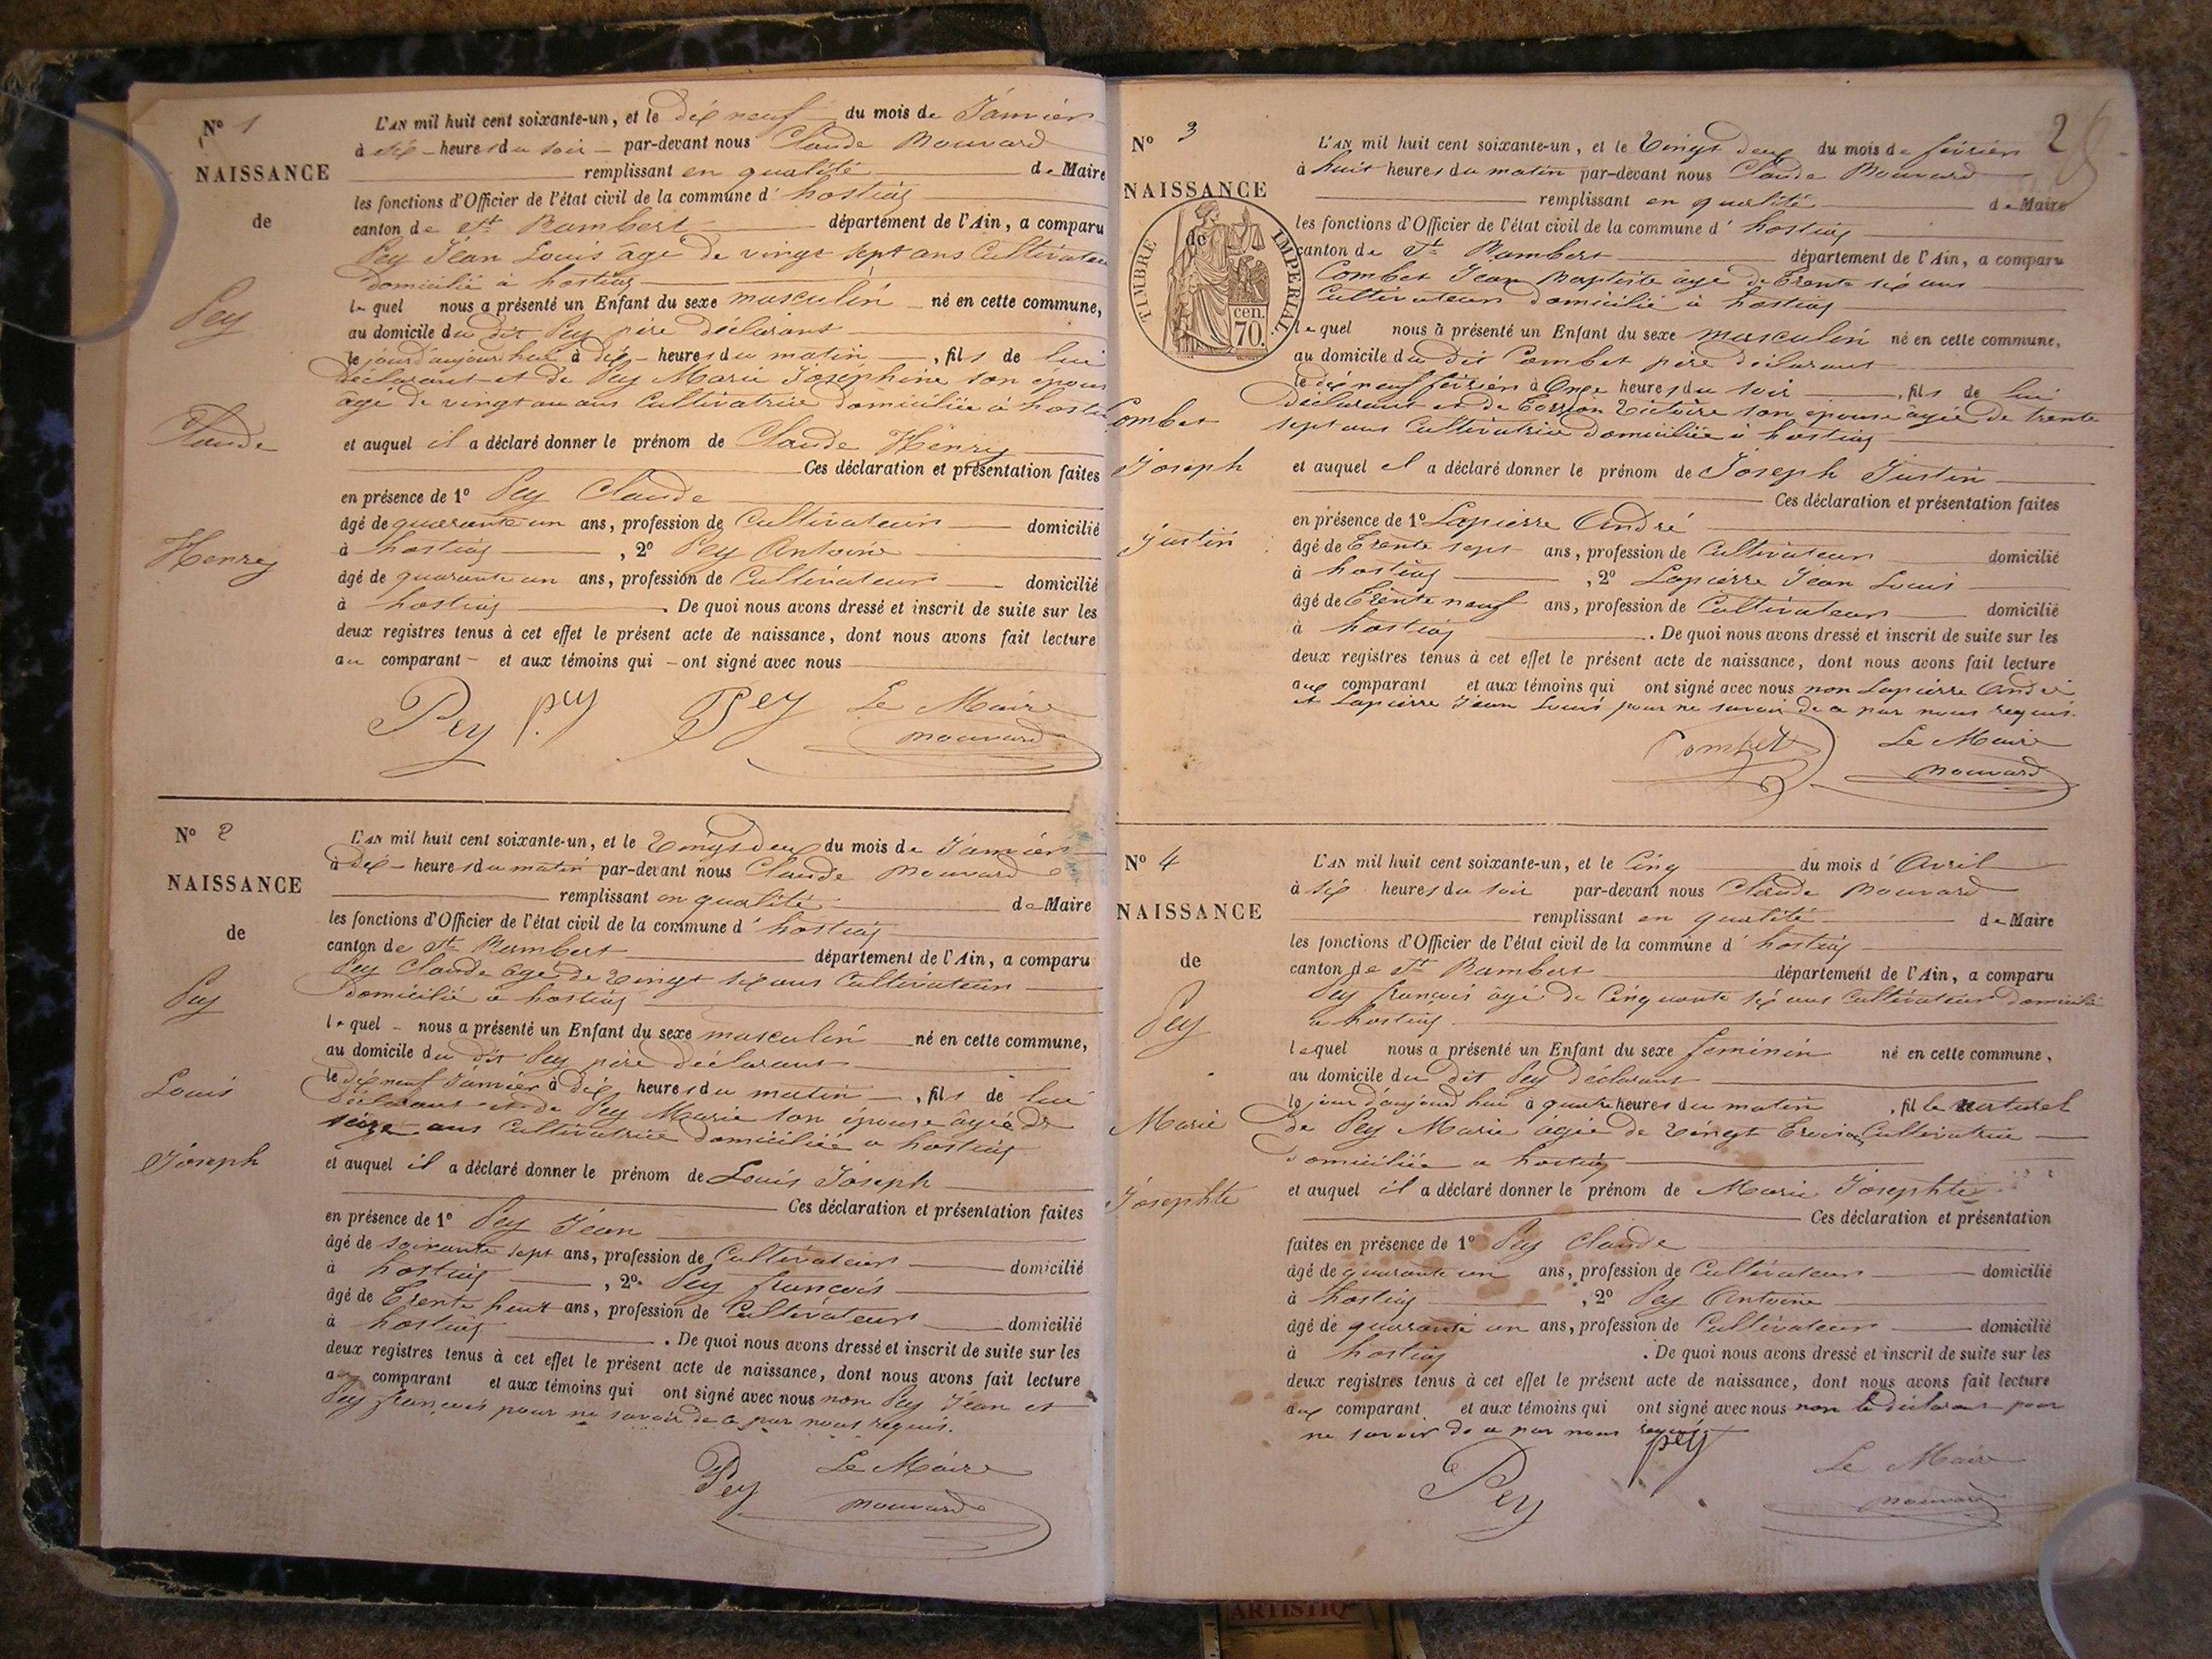 Nº 1
NAISSANCE
de
Pey
Claude
Henry
L'AN mil huit cent soixante-un, et le dix neuf du mois de Janvier
à six heures du soir par-devant nous Claude Mouvard
remplissant en qualité de Maire
les fonctions d'Officier de l'état civil de la commune d'hostiaz
canton de St Rambert département de l'Ain, a comparu
Pey Jean Louis âgé de vingt sept ans Cultivateur
domicilié à hostiaz
lequel nous a présenté un Enfant du sexe masculin né en cette commune,
au domicile du dit Pey père déclarant
le jour d'aujourd'hui à dix heures du matin, fils de lui
déclarant et de Pey Marie Joséphine son épouse
age de vingt un ans Cultivatrice domiciliée à hostiaz
et auquel il a déclaré donner le prénom de Claude Henry
Ces déclaration et présentation faites
en présence de 1º Pey Claude
âgé de quarante un ans, profession de Cultivateur domicilié
à hostiaz, 2º Pey Antoine
âgé de quarante un ans, profession de Cultivateur domicilié
à hostiaz. De quoi nous avons dressé et inscrit de suite sur les
deux registres tenus à cet effet le présent acte de naissance, dont nous avons fait lecture
au comparant et aux témoins qui ont signé avec nous
Pey pey Pey Le Maire
Mouvard
Nº 2
NAISSANCE
de
Pey
Louis
Joseph
L'AN mil huit cent soixante-un, et le Vingt deux du mois de Janvier
à dix heures du matin par-devant nous Claude Mouvard
remplissant en qualité de Maire
les fonctions d'Officier de l'état civil de la commune d'hostiaz
canton de St Rambert département de l'Ain, a comparu
Pey Claude âgé de Vingt six ans Cultivateur
domicilié à hostiaz
lequel nous a présenté un Enfant du sexe masculin né en cette commune,
au domicile du dit Pey père déclarant
le dix neuf Janvier à dix heures du matin, fils de lui
déclarant et de Pey Marie son épouse âgée de
seize ans Cultivatrice domiciliée a hostiaz
et auquel il a déclaré donner le prénom de Louis Joseph
Ces déclaration et présentation faites
en présence de 1º Pey Jean
âgé de soixante sept ans, profession de Cultivateur domicilié
à hostiaz, 2º Pey françois
âgé de Trente huit ans, profession de Cultivateur domicilié
à hostiaz. De quoi nous avons dressé et inscrit de suite sur les
deux registres tenus à cet effet le présent acte de naissance, dont nous avons fait lecture
aux comparant et aux témoins qui ont signé avec nous non Pey Jean et
Pey françois pour ne savoir de ce par nous requis.
Pey Le Maire
Mouvard
2
Nº 3
NAISSANCE
de
TIMBRE IMPERIAL
cen.
70.
Combet
Joseph
Justin
L'AN mil huit cent soixante-un, et le Vingt deux du mois de février
à huit heures du matin par-devant nous Claude Mouvard
remplissant en qualité de Maire
les fonctions d'Officier de l'état civil de la commune d'hostiaz
canton de St Rambert département de l'Ain, a comparu
Combet Jean Baptiste âgé de Trente six ans
Cultivateur domicilié à hostiaz
lequel nous a présenté un Enfant du sexe masculin né en cette commune,
au domicile du dit Combet père déclarant
le dix neuf février à Onze heures du soir, fils de lui
déclarant et de Victoire son épouse agée de trente
sept ans Cultivatrice domiciliée à hostiaz
et auquel il a déclaré donner le prénom de Joseph Justin
Ces déclaration et présentation faites
en présence de 1º Lapierre André
âgé de Trente sept ans, profession de Cultivateur domicilié
à hostiaz, 2º Lapierre Jean Louis
âgé de Trente neuf ans, profession de Cultivateur domicilié
à hostiaz. De quoi nous avons dressé et inscrit de suite sur les
deux registres tenus à cet effet le présent acte de naissance, dont nous avons fait lecture
aux comparant et aux témoins qui ont signé avec nous non Lapierre André
et Lapierre Jean Louis pour ne savoir de ce par nous requis.
Combet Le Maire
Mouvard
Nº 4
NAISSANCE
de
Pey
Marie
Josephte
L'AN mil huit cent soixante-un, et le Cinq du mois d'Avril
à six heures du soir par-devant nous Claude Mouvard
remplissant en qualité de Maire
les fonctions d'Officier de l'état civil de la commune d'hostiaz
canton de St Rambert département de l'Ain, a comparu
Pey françois âgé de Cinquante six ans Cultivateur domicilié
a hostiaz
lequel nous a présenté un Enfant du sexe feminin né en cette commune,
au domicile du dit Pey déclarant
le jour d'aujourd'hui à quatre heures du matin, fille naturel
de Pey Marie agée de Vingt Trois ans Cultivatrice
domiciliée a hostiaz
et auquel il a déclaré donner le prénom de Marie Josephte
Ces déclaration et présentation
faites en présence de 1º Pey Claude
âgé de quarante un ans, profession de Cultivateur domicilié
à hostiaz, 2º Pey Antoine
âgé de quarante un ans, profession de Cultivateur domicilié
à hostiaz. De quoi nous avons dressé et inscrit de suite sur les
deux registres tenus à cet effet le présent acte de naissance, dont nous avons fait lecture
aux comparant et aux témoins qui ont signé avec nous non le déclarant pour
ne savoir de ce par nous requis
Pey pey Le Maire
Mouvard
ARTISTIQ